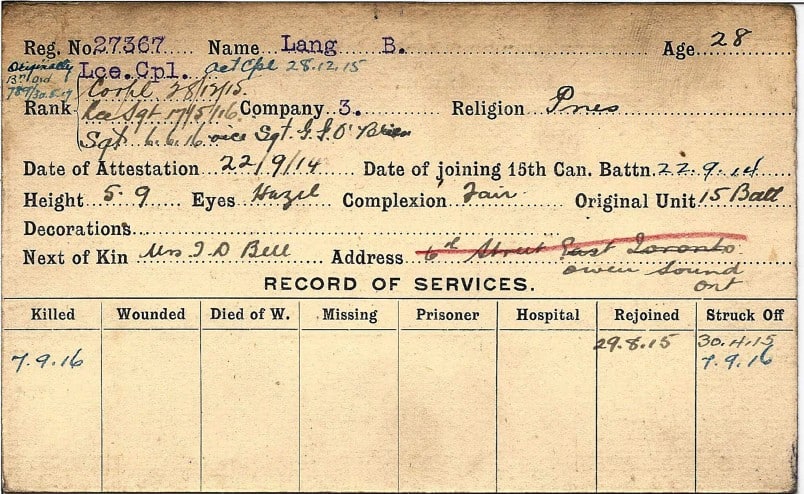 Reg. No. 27367 Name Lang B. Age 28
Originally Lce. Cpl. act Cpl 28.12.15
Corpl 28/12/15
Rank Lce Sgt 17/5/16 Company 3. Religion Pres
Sgt 6.6.16 vice Sgt. G. F. O'Brien
Date of Attestation 22/9/14 Date of joining 15th Can. Battn. 22.9.14
Height 5-9 Eyes Hazel Complexion Fair Original Unit 15 Batt
Decorations
Next of Kin Mrs J D Bell Address 6th Street East Toronto
Owen Sound
Ont
RECORD OF SERVICES.
Killed Wounded Died of W. Missing Prisoner Hospital Rejoined Struck Off
29.8.15 30.4.15
7.9.16 7.9.16